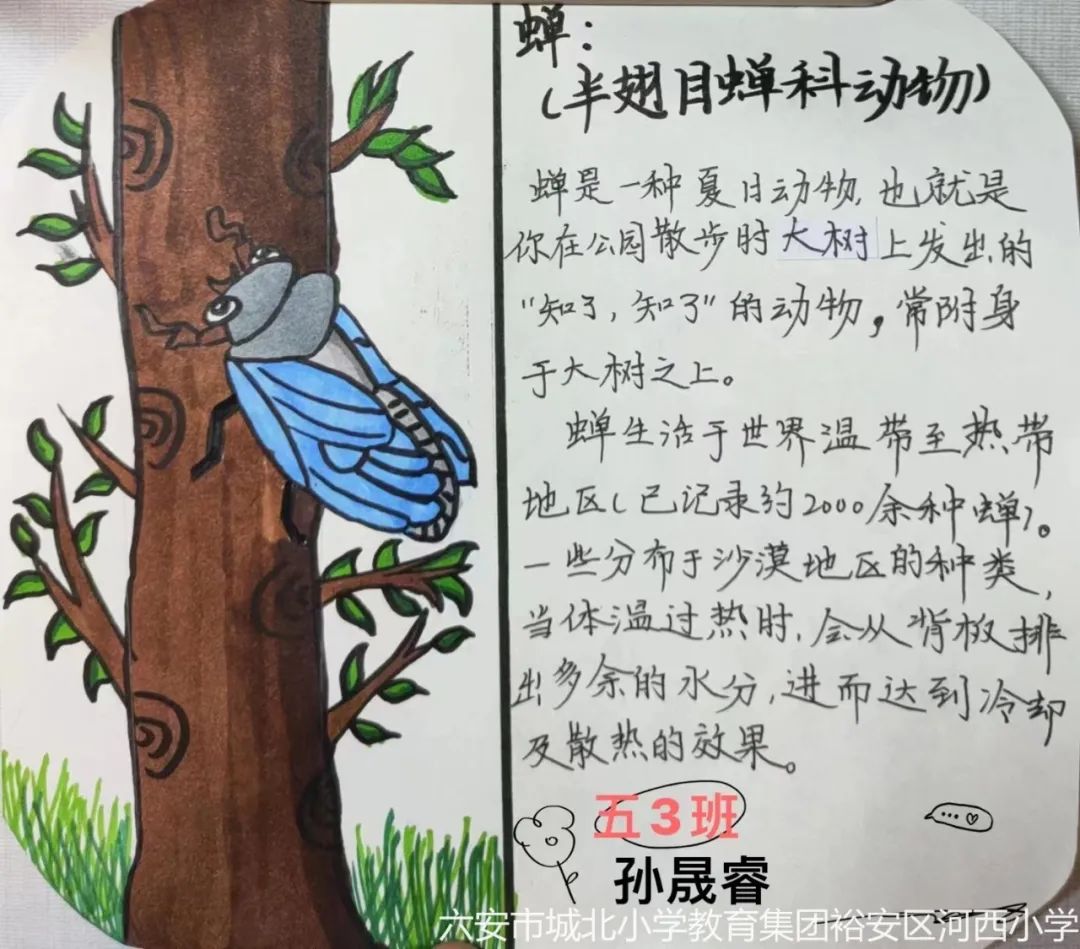 蝉：
（半翅目蝉科动物）
蝉是一种夏日动物，也就是
你在公园散步时大树上发出的
“知了，知了”的动物，常附身
于大树之上。
蝉生活于世界温带至热带
地区（已记录约2000余种蝉）。
一些分布于沙漠地区的种类，
当体温过热时，会从背板排
出多余的水分，进而达到冷却
及散热的效果。
五3班
孙晟睿
六安市城北小学教育集团裕安区河西小学